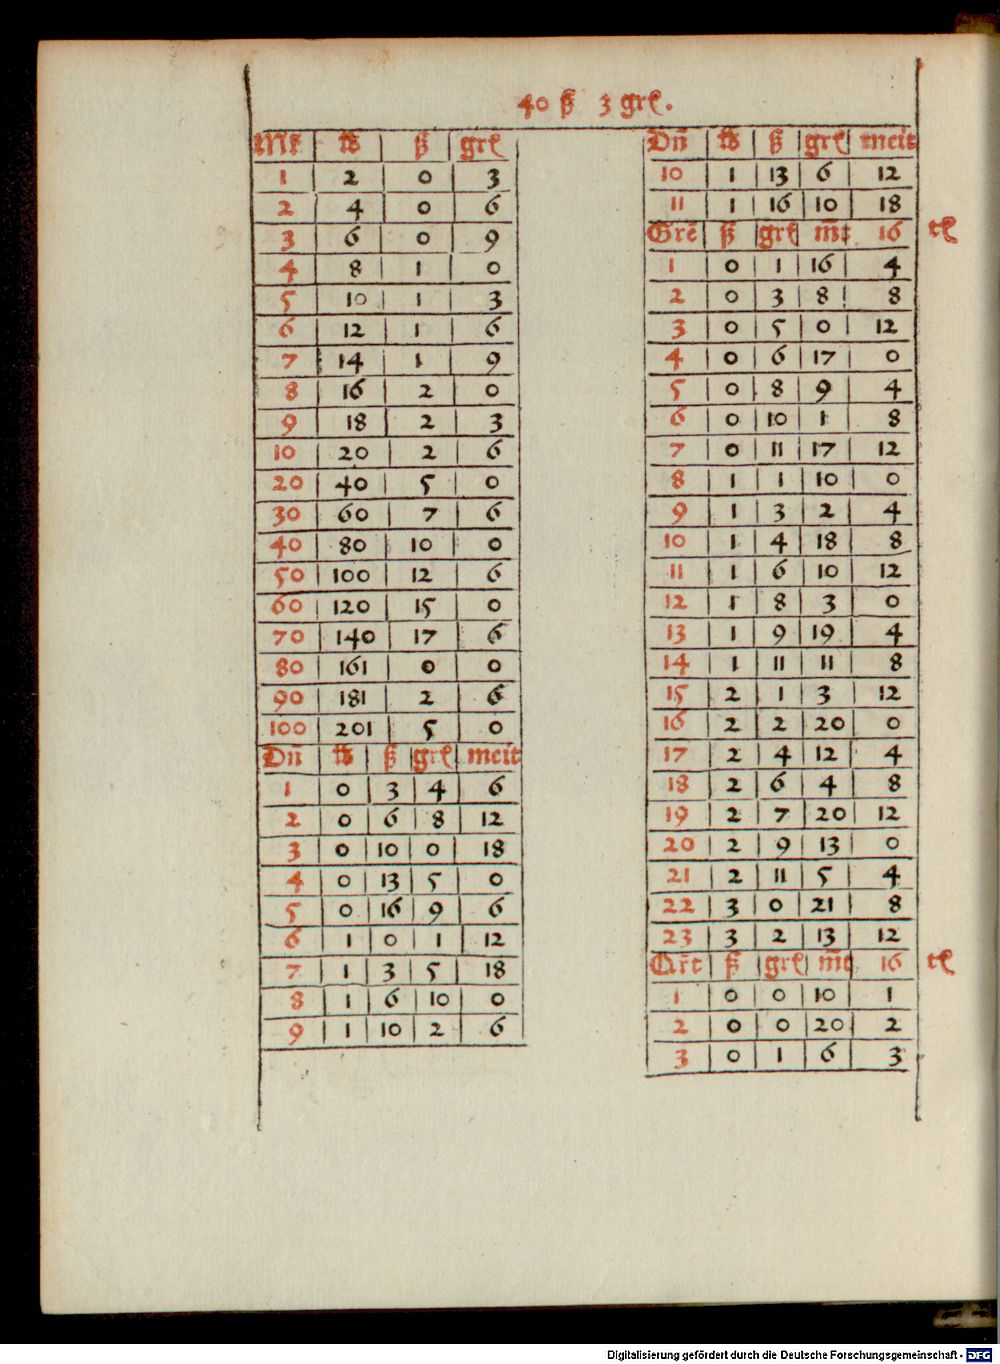 40 ß 3 grꝭ.
Mk lb ß grꝭ
1 2 0 3
2 4 0 6
3 6 0 9
4 8 1 0
5 10 1 3
6 12 1 6
7 14 1 9
8 16 2 0
9 18 2 3
10 20 2 6
20 40 5 0
30 60 7 6
40 80 10 0
50 100 12 6
60 120 15 0
70 140 17 6
80 161 0 0
90 181 2 6
100 201 5 0
Dn̄ lb ß grꝭ meit
1 0 3 4 6
2 0 6 8 12
3 0 10 0 18
4 0 13 5 0
5 0 16 9 6
6 1 0 1 12
7 1 3 5 18
8 1 6 10 0
9 1 10 2 6
Dn̄ lb ß grꝭ meit
10 1 13 6 12
11 1 16 10 18
Grē ß grꝭ m̄t 16 tꝭ
1 0 1 16 4
2 0 3 8 8
3 0 5 0 12
4 0 6 17 0
5 0 8 9 4
6 0 10 1 8
7 0 11 17 12
8 1 1 10 0
9 1 3 2 4
10 1 4 18 8
11 1 6 10 12
12 1 8 3 0
13 1 9 19 4
14 1 11 11 8
15 2 1 3 12
16 2 2 20 0
17 2 4 12 4
18 2 6 4 8
19 2 7 20 12
20 2 9 13 0
21 2 11 5 4
22 3 0 21 8
23 3 2 13 12
Qr̄t ß grꝭ m̄t 16 tꝭ
1 0 0 10 1
2 0 0 20 2
3 0 1 6 3
Digitalisierung gefördert durch die Deutsche Forschungsgemeinschaft - DFG